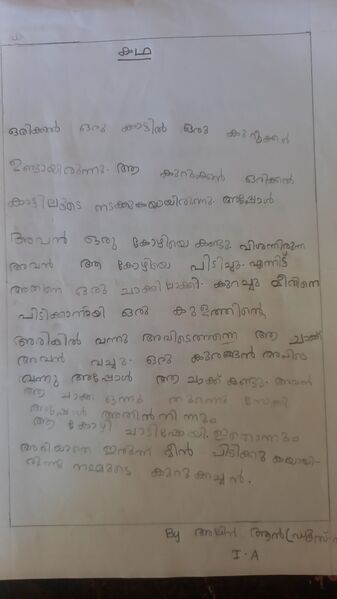 കഥ
ഒരിക്കൽ ഒരു കാട്ടിൽ ഒരു കുറുക്കൻ
ഉണ്ടായിരുന്നു. ആ കുറുക്കൻ ഒരിക്കൽ
കാട്ടിലൂടെ നടക്കുകയായിരുന്നു. അപ്പോൾ
അവൻ ഒരു കോഴിയെ കണ്ടു വിശന്നിരുന്ന
അവൻ ആ കോഴിയെ പിടിച്ചു. എന്നിട്ട്
അതിനെ ഒരു ചാക്കിലാക്കി. കുറച്ചു മീനിനെ
പിടിക്കാനായി ഒരു കുളത്തിന്റെ
അരികിൽ വന്നു അവിടെത്തന്നെ ആ ചാക്ക്
അവൻ വച്ചു. ഒരു കുരങ്ങൻ അവിടെ
വന്നു അപ്പോൾ ആ ചാക്ക് കണ്ടു. അവൻ
ആ ചാക്ക് ഒന്നു തുറന്നു നോക്കി
അപ്പോൾ അതിൽ നിന്നും
ആ കോഴി ചാടിപ്പോയി. ഇതൊന്നും
അറിയാതെ ഇരുന്ന് മീൻ പിടിക്കുകയായി-
രുന്നു നമ്മുടെ കുറുക്കച്ചൻ.
By ആൻ
I-A